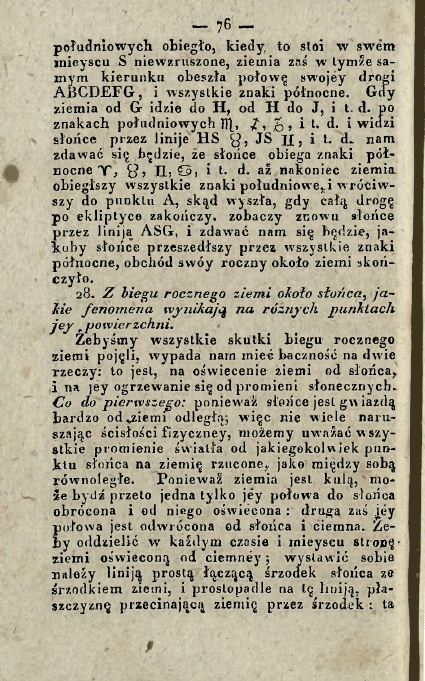 — 76 —
południowych obiegło, kiedy to stoi w swém
mieyscu S niewzruszone, ziemia zaś w tymże sa-
mym kierunku obeszła połowę swojéy drogi
ABCDEFG, i wszystkie znaki północne. Gdy
ziemia od G idzie do H, od H do J, i t. d. po
znakach południowych ♏, ♐, ♑, i t. d. i widzi
słońce przez linije HS ♉, JS ♊, i t. d. nam
zdawać się będzie, że słońce obiega znaki pół-
nocne ♈, ♉, ♊, ♋, i t. d. aż nakoniec ziemia
obiegłszy wszystkie znaki południowe, i wróciw-
szy do punktu A, skąd wyszła, gdy całą drogę
po ekliptyce zakończy, zobaczy znowu słońce
przez liniją ASG, i zdawać nam się będzie, ja-
koby słońce przeszedłszy przez wszystkie znaki
północne, obchód swóy roczny około ziemi skoń-
czyło.
28. Z biegu rocznego ziemi około słońca, ja-
kie fenomena wynikają na różnych punktach
jey powierzchni.
Żebyśmy wszystkie skutki biegu rocznego
ziemi pojęli, wypada nam mieć baczność na dwie
rzeczy: to jest, na oświecenie ziemi od słońca,
i na jey ogrzewanie się od promieni słonecznych.
Co do pierwszego: ponieważ słońce jest gwiazdą
bardzo od ziemi odległą; więc nie wiele naru-
szając ścisłości fizyczney, możemy uważać wszy-
stkie promienie światła od jakiegokolwiek pun-
ktu słońca na ziemię rzucone, jako między sobą
równoległe. Ponieważ ziemia jest kulą, mo-
że bydź przeto jedna tylko jéy połowa do słońca
obrócona i od niego oświécona: druga zaś jéy
połowa jest odwrócona od słońca i ciemna. Że-
by oddzielić w każdym czasie i mieyscu stronę
ziemi oświeconą od ciemney; wystawić sobie
należy liniją prostą łączącą śrzodek słońca ze
śrzodkiem ziemi, i prostopadle na tę liniją, pła-
szczyznę przecinającą ziemię przez śrzodek: ta